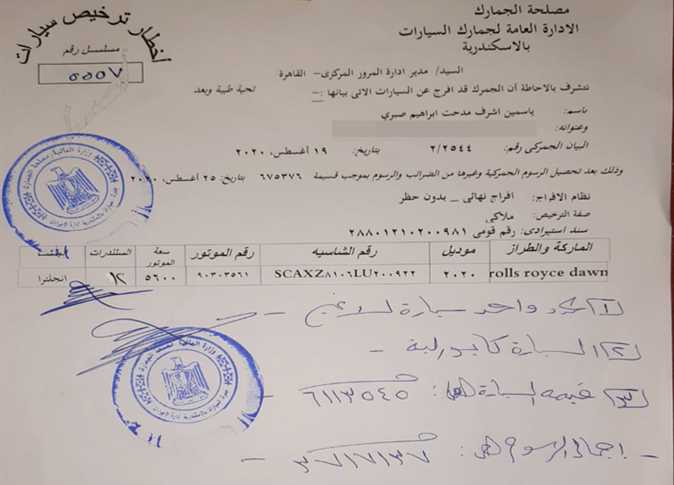 مصلحة الجمارك
الادارة العامة لجمارك السيارات
بالاسكندرية
أخطار ترخيص سيارات
مسلسل رقم
٥٥٥٧
السيد/ مدير ادارة المرور المركزى- القاهرة
تحية طيبة وبعد
نتشرف بالاحاطة أن الجمرك قد افرج عن السيارات الاتى بيانها :-
باسم: ياسمين اشرف مدحت ابراهيم صبري
وعنوانه:
البيان الجمركى رقم: ٢/٢٥٤٤ بتاريخ: ١٩ أغسطس، ٢٠٢٠
وذلك بعد تحصيل الرسوم الجمركية وغيرها من الضرائب والرسوم بموجب قسيمة ٦٧٥٣٧٦ بتاريخ: ٢٥ أغسطس، ٢٠٢٠
نظام الافراج: افراج نهائى _ بدون حظر
صفة الترخيص: ملاكي
سند استيرادى: رقم قومى ٢٨٨٠١٢١٠٢٠٠٩٨١
الماركة والطراز موديل رقم الشاسيه رقم الموتور سعة الموتور السلندرات
rolls royce dawn ٢٠٢٠ SCAXZ٨١٠٦LU٢٠٠٩٢٢ ٩٠٣٠٣٥٦١ ٥٦٠٠ ١٢ انجلترا
١) عدد واحد سيارة لا غير -
٢) السيارة كابورليه -
٣) قيمة السيارة ٦١١٣٥٤٥ -
- اجمالى الرسوم ٣٧١٧١٣٧ -